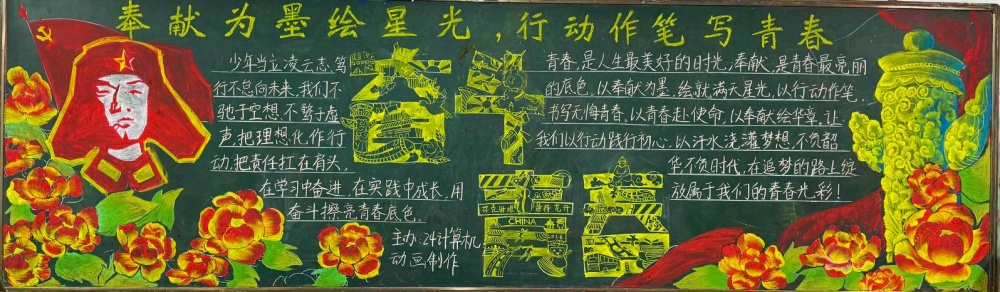 奉献为墨绘星光,行动作笔写青春
少年当立凌云志,笃
行不怠向未来,我们不
驰于空想,不骛于虚
声,把理想化作行
动,把责任扛在肩头,
在学习中奋进,在实践中成长,用
奋斗擦亮青春底色。
主办:24计算机
动画制作
CHINA
青春,是人生最美好的时光,奉献,是青春最亮丽
的底色,以奉献为墨,绘就满天星光,以行动作笔,
书写无悔青春,以青春赴使命,以奉献绘华章,让
我们以行动践行初心,以汗水浇灌梦想,不负韶
华不负时代,在追梦的路上绽
放属于我们的青春光彩!